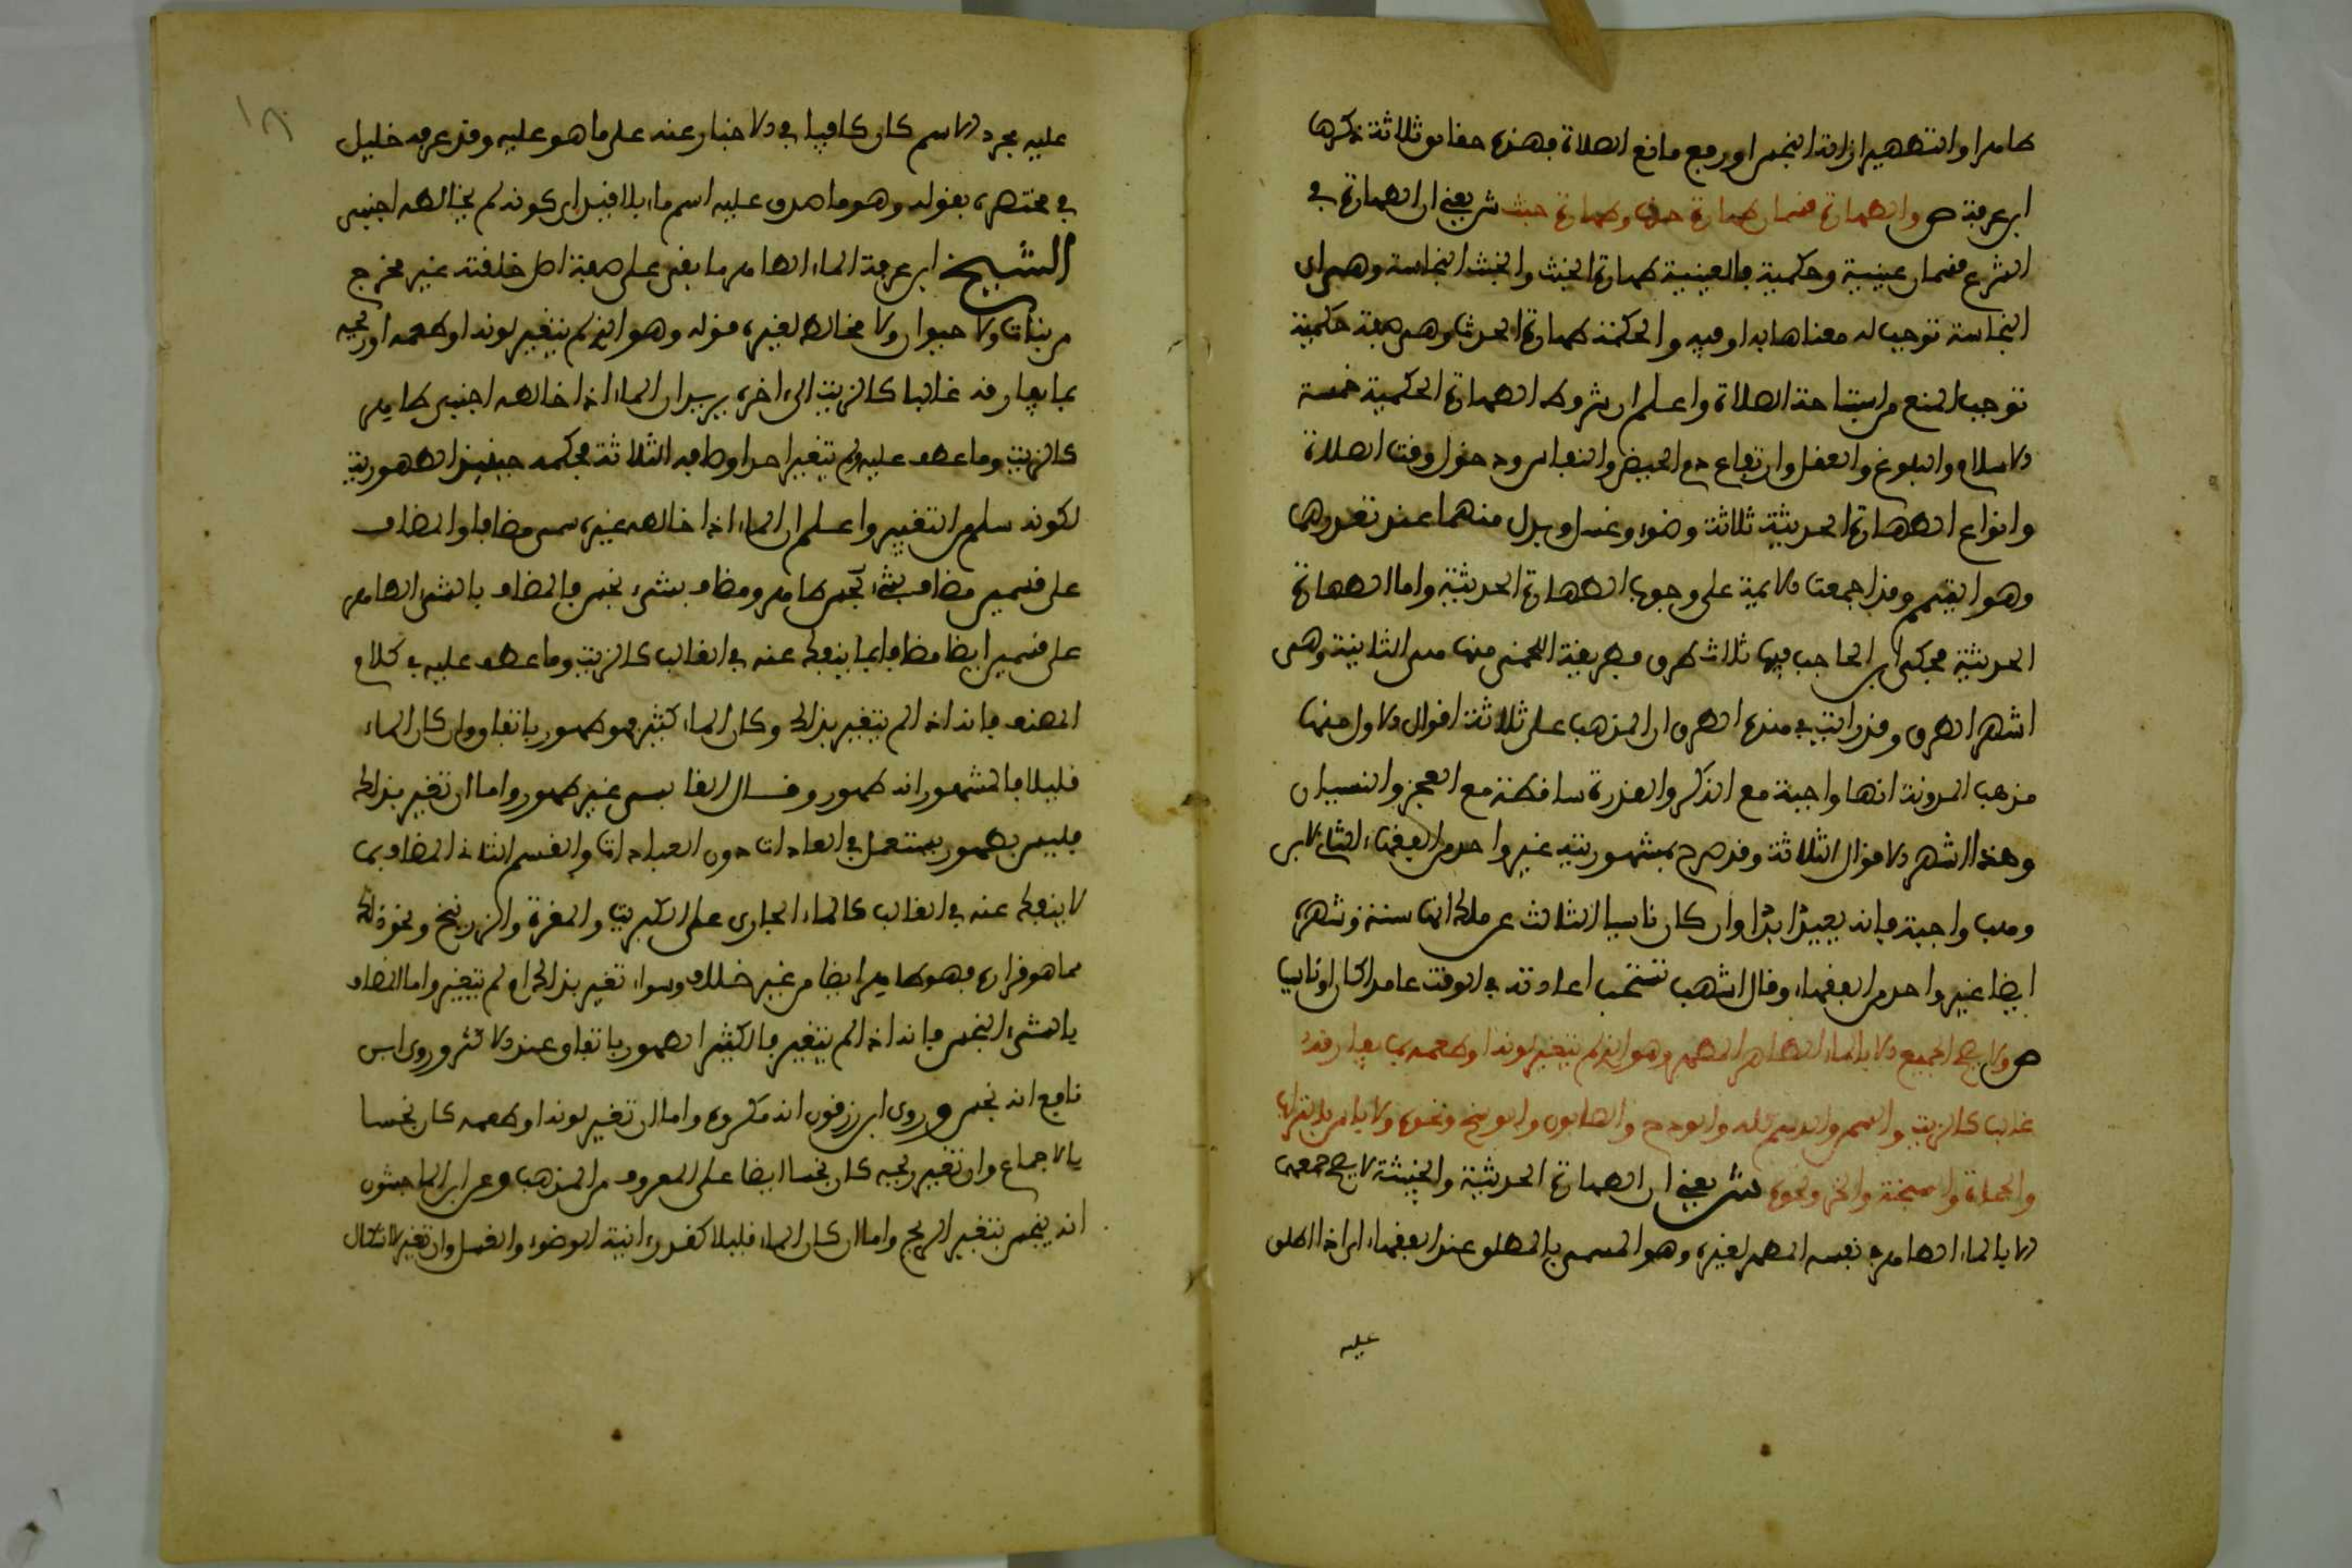 طاهرا والتطهير ازالة النجس او رفع مانع الصلاة فهذه حقائق ثلاثة ذكرها
ابن عرفة ص والطهارة قسمان طهارة حدث وطهارة خبث ش يعني ان الطهارة في
الشرع قسمان عينية وحكمية فالعينية طهارة الخبث والخبث النجاسة وهي اي
النجاسة توجب له معناها به او فيه والحكمية طهارة الحدث وهي صفة حكمية
توجب المنع من استباحة الصلاة واعلم ان شروط الطهارة الحكمية خمسة
الاسلام والبلوغ والعقل وارتفاع دم الحيض والنفاس ودخول وقت الصلاة
وانواع الطهارة الحدثية ثلاثة وضوء وغسل وبدل منهما عند تعذرهما
وهو التيمم وقد اجمعت الامة على وجوب الطهارة الحدثية واما الطهارة
الحدثية فحكى ابن الحاجب فيها ثلاث طرق طريقة اللخمي منها هي الثانية وهي
اشهر الطرق وقد اتت في هذه الطرق ان المذهب على ثلاثة اقوال الاول منها
مذهب المدونة انها واجبة مع الذكر والقدرة ساقطة مع العجز والنسيان
وهذا اشهر الاقوال الثلاثة وقد صرح بمشهوريته غير واحد من الفقهاء الثاني لابن
وهب واجبة فانه يعيد ابدا وان كان ناسيا الثالث عن ملك انها سنة وشهره
ايضا غير واحد من الفقهاء وقال اشهب تستحب اعادته في الوقت عامدا كان او ناسيا
ص ولا يصح الجميع الا بالماء الطاهر المطهر وهو الذي لم يتغير لونه او طعمه بما يفارقه
غالبا كالزيت والسمن والدسم كله والودح والصابون والوسخ ونحوه ولا باس بالتراب
والحمأة والسبخة والخز ونحوه ش يعني ان الطهارة الحدثية والخبثية لا يصح جميعهن
الا بالماء الطاهر في نفسه المطهر لغيره وهو المسمى بالمطلق عند الفقهاء اي اذا اطلق
عليه
عليه مجرد الاسم كان كافيا في الاخبار عنه على ما هو عليه وقد عرفه خليل
في مختصره بقوله وهو ما صدق عليه اسم ماء بلا قيد اي كونه لم يخالطه اجنبي
الشيخ ابن عرفة الماء الطاهر ما بقي على صفة اصل خلقته غير مخرج
من نبات ولا حيوان ولا مخالط لغيره قوله وهو الذي لم يتغير لونه او طعمه او ريحه
بما يفارقه غالبا كالزيت الى اخره يريد ان الماء اذا خالطه اجنبي طاهر
كالزيت وما عطف عليه ولم يتغير احد اوصافه الثلاثة فحكمه حينئذ الطهورية
لكونه سلم من التغيير واعلم ان الماء اذا خالطه غيره سمي مضافا والمضاف
على قسمين مضاف بشيء طاهر ومضاف بشيء نجس فالمضاف بالشيء الطاهر
على قسمين ايضا مضاف بما ينفك عنه في الغالب كالزيت وما عطف عليه في كلام
المصنف فانه اذا لم يتغير بذلك وكان الماء كثيرا فهو طهور باتفاق وان كان الماء
قليلا فالمشهور انه طهور وقال القابسي غير طهور واما ان تغير بذلك
فليس بطهور يستعمل في العادات دون العبادات والقسم الثاني المضاف بما
لا ينفك عنه في الغالب كالماء الجاري على الكبريت والمغرة والزرنيخ ونحو ذلك
مما هو قراره فهو طاهر ايضا من غير خلاف وسواء تغير بذلك او لم يتغير واما المضاف
بالشيء النجس فانه اذا لم يتغير فالكثير الطهور باتفاق عند الاكثر وروى ابن
نافع انه نجس وروى ابن زرقون انه مكروه واما ان تغير لونه او طعمه كان نجسا
بالاجماع وان تغير ريحه كان نجسا ايضا على المعروف من المذهب وعن ابن الماجشون
انه ينجس بتغير الريح واما ان كان الماء قليلا كقدر انية الوضوء والغسل وان تغير لا اشكال